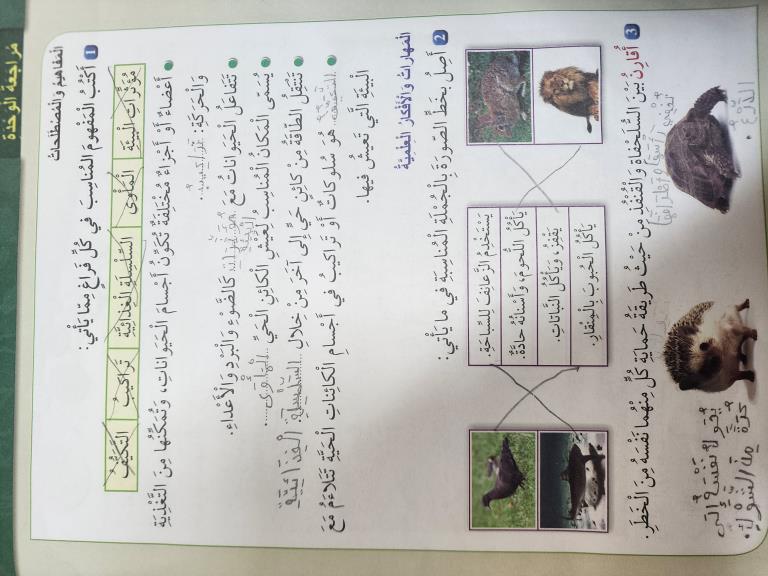 مُراجعة الوحدة
المَفاهيمُ وَالْمُصْطَلَحاتُ
1 أَكْتُبُ الْمَفْهومَ الْمُناسِبَ في كُلِّ فَراغٍ مِمّا يَأْتي:
التَّكَيُّفُ تَراكيبُ السِّلْسِلَةُ الْغِذائِيَّةُ الْمَأْوى مُؤَثِّراتُ الْبيئَةِ
أَعْضاءٌ أَوْ أَجْزاءٌ مُخْتَلِفَةٌ تُكَوِّنُ أَجْسامَ الْحَيَواناتِ، وَتُمَكِّنُها مِنَ التَّغْذِيَةِ
وَالْحَرَكَةِ: تراكيب.
تَتَفاعَلُ الْحَيَواناتُ مَعَ مؤثرات البيئة كَالضَّوْءِ وَالْبَرْدِ وَالْأَعْداءِ.
يُسَمّى الْمَكانُ الْمُناسِبُ لِعَيْشِ الْكائِنِ الْحَيِّ المأوى.
تَنْتَقِلُ الطّاقَةُ مِنْ كائِنٍ حَيٍّ إِلى آخَرَ مِنْ خِلالِ السلسلة الغذائية
التكيف هُوَ سُلوكاتٌ أَوْ تَراكيبُ في أَجْسامِ الْكائِناتِ الْحَيَّةِ تَتَلاءَمُ مَعَ
الْبيئَةِ الَّتي تَعيشُ فيها.
الْمَهاراتُ وَالْأَفْكارُ الْعِلْمِيَّةُ
2 أَصِلُ بِخَطٍّ الصّورَةَ بِالْجُمْلَةِ الْمُناسِبَةِ في ما يَأْتي:
يَسْتَخْدِمُ الزَّعانِفَ لِلسِّباحَةِ.
يَأْكُلُ اللُّحومَ، وَأَسْنانُهُ حادَّةٌ.
يَقْفِزُ، وَيَأْكُلُ النَّباتاتِ.
يَأْكُلُ الْحُبوبَ بِالْمِنْقارِ.
3 أُقارِنُ بَيْنَ السُّلَحْفاةِ وَالْقُنْفُذِ مِنْ حَيْثُ طَريقَةُ حِمايَةِ كُلٍّ مِنْهُما نَفْسَهُ مِنَ الْخَطَرِ.
رأسها وأطرافها
يحول نفسه إلى
كرة
من الشوك.